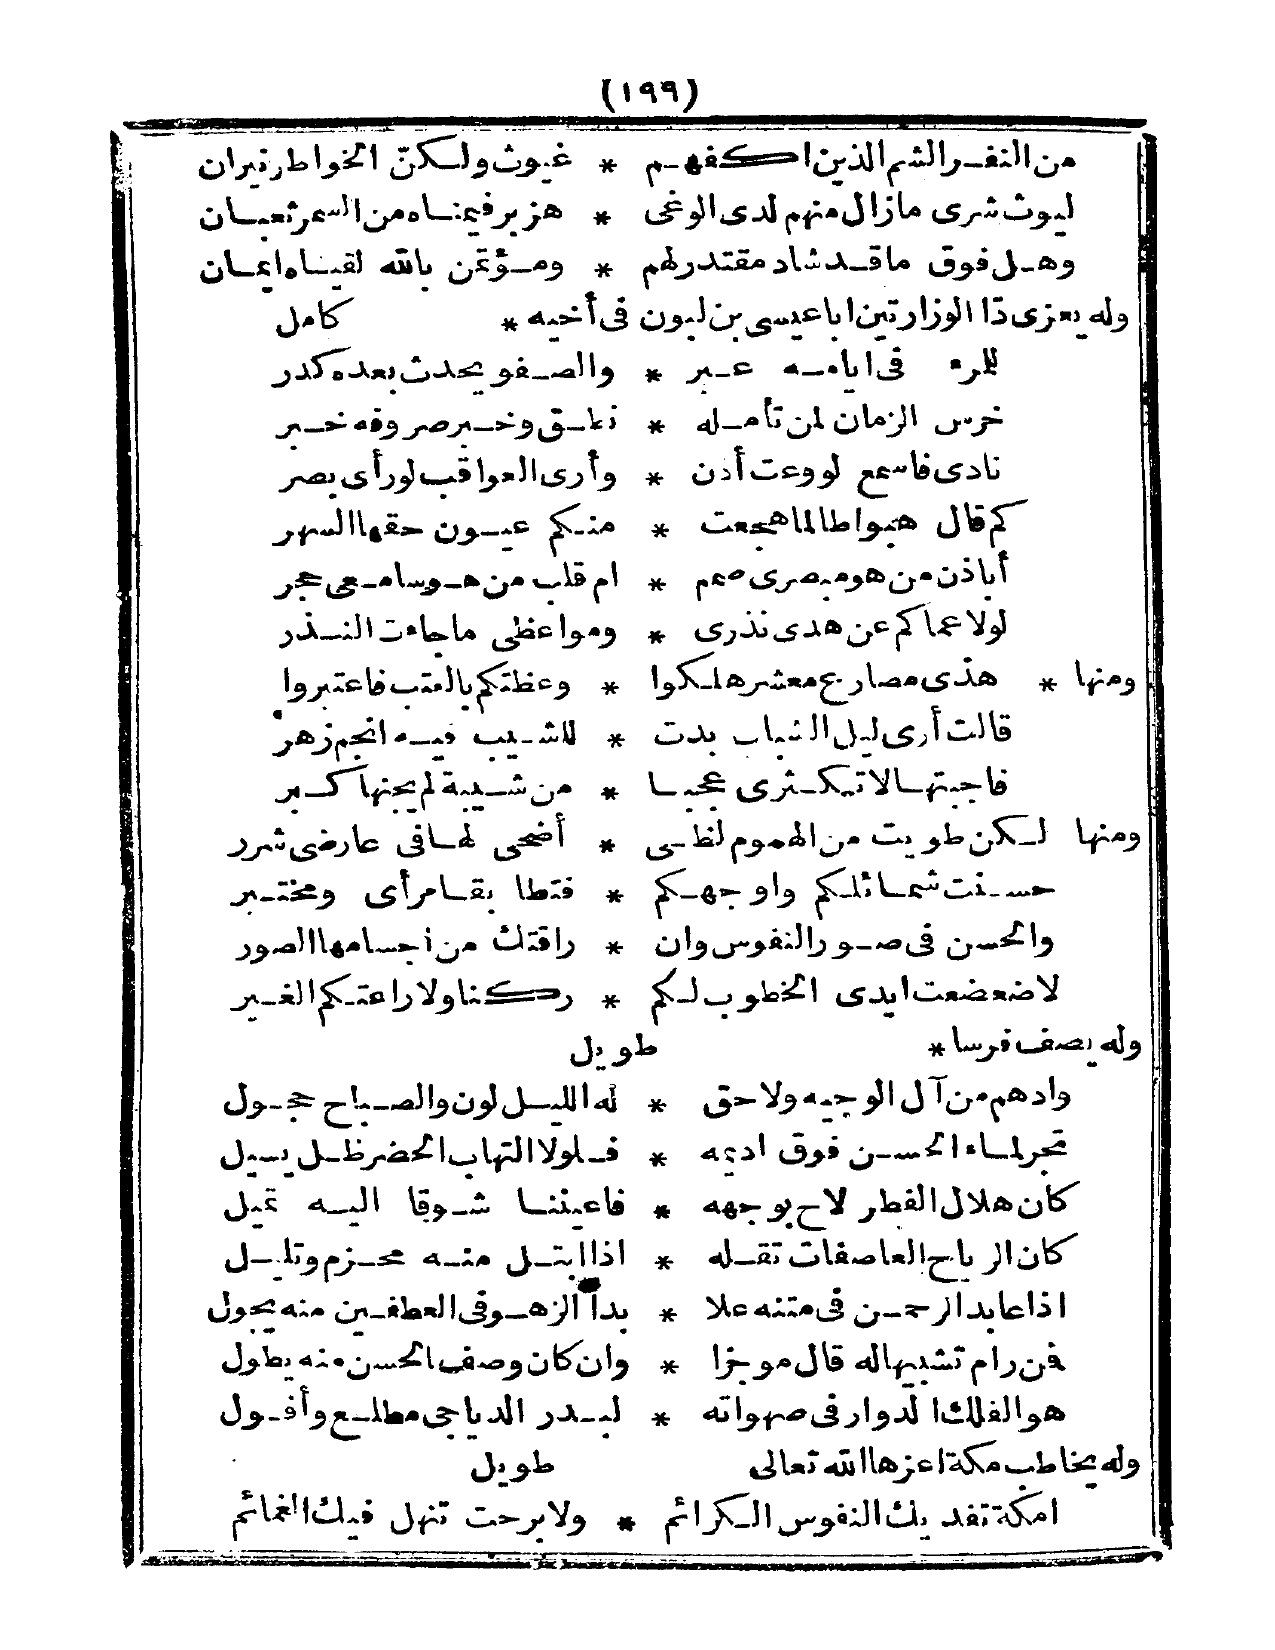 (١٩٩)
من النفر الشم الذين اكفهم * غيوث ولكنّ الخواطر نيران
ليوث شرى مازال منهم لدى الوغى * هزبر فيمناه من السمر ثعبان
وهل فوق ماقد شاد مقتدر لهم * ومؤتمن بالله لقياه ايمان
وله يعزى ذا الوزارتين ابا عيسى بن لبون فى أخيه * كامل
للمرء فى ايامه عبر * والصفو يحدث بعده كدر
خرس الزمان لمن تأمله * نطق وخبر صروفه خبر
نادى فاسمع لو وعت أذن * وأرى العواقب لو رأى بصر
كم قال هبوا طالما هجعت * منكم عيون حقها السهر
أباذن من هو مبصرى صمم * ام قلب من هو سامعى حجر
لولا عماكم عن هدى نذرى * ومواعظى ماجاءت النذر
ومنها * هذى مصارع معشر هلكوا * وعظتكم بالعتب فاعتبروا
قالت أرى ليل الشباب بدت * للشيب فيه انجم زهر
فاجبتها لاتكثرى عجبا * من شيبة لم يجنها كبر
ومنها لكن طويت من الهموم لظى * أضحى لها فى عارضى شرر
حسنت شمائلكم واوجهكم * فتطابقا مرأى ومختبر
والحسن فى صور النفوس وان * راقتك من أجسامها الصور
لاضعضعت ايدى الخطوب لكم * ركنا ولا راعتكم الغير
وله يصف فرسا * طويل
وادهم من آل الوجيه ولاحق * له الليل لون والصباح حجول
تحير لماء الحسن فوق اديمه * فلولا التهاب الحضر ظل يسيل
كان هلال الفطر لاح بوجهه * فاعيننا شوقا اليه تميل
كان الرياح العاصفات تقله * اذا ابتل منه محزم وتليل
اذا عابد الرحمن فى متنه علا * بدا الزهو فى العطفين منه يجول
فمن رام تشبيها له قال موجزا * وان كان وصف الحسن منه يطول
هو الفلك الدوار فى صهواته * لبدر الدياجى مطلع وأفول
وله يخاطب مكة اعزها الله تعالى طويل
امكة تفديك النفوس الكرائم * ولا برحت تنهل فيك الغمائم